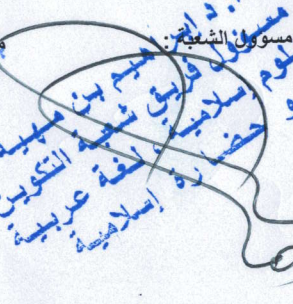 مسؤول الشعبة :
بن
مسؤول فريق شعبة التكوين
علوم إسلامية لغة عربية
و حضارة إسلامية